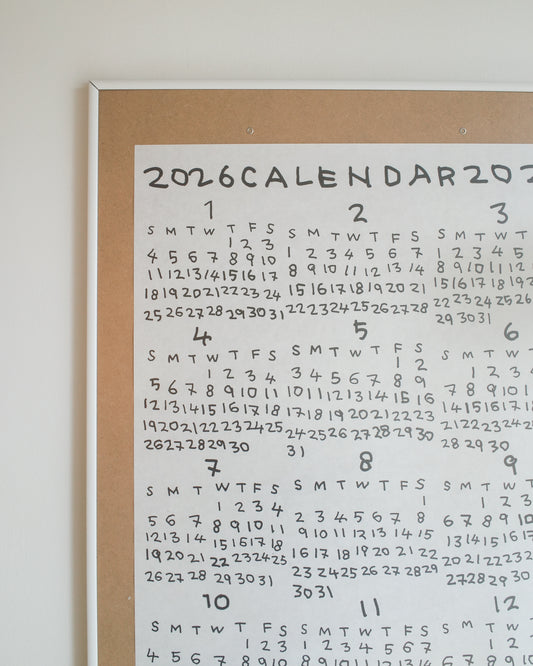 2026 CALENDAR 202
1
S M T W T F S
1 2 3
4 5 6 7 8 9 10
11 12 13 14 15 16 17
18 19 20 21 22 23 24
25 26 27 28 29 30 31
2
S M T W T F S
1 2 3 4 5 6 7
8 9 10 11 12 13 14
15 16 17 18 19 20 21
22 23 24 25 26 27 28
3
S M T W T
1 2 3 4 5
8 9 10 11 12
15 16 17 18 19
22 23 24 25 26
29 30 31
4
S M T W T F S
1 2 3 4
5 6 7 8 9 10 11
12 13 14 15 16 17 18
19 20 21 22 23 24 25
26 27 28 29 30
5
S M T W T F S
1 2
3 4 5 6 7 8 9
10 11 12 13 14 15 16
17 18 19 20 21 22 23
24 25 26 27 28 29 30
31
6
S M T W
1 2 3 4
7 8 9 10
14 15 16 17
21 22 23 24 25
28 29 30
7
S M T W T F S
1 2 3 4
5 6 7 8 9 10 11
12 13 14 15 16 17 18
19 20 21 22 23 24 25
26 27 28 29 30 31
8
S M T W T F S
1
2 3 4 5 6 7 8
9 10 11 12 13 14 15
16 17 18 19 20 21 22
23 24 25 26 27 28 29
30 31
9
S M T W
1 2 3
6 7 8 9 10
13 14 15 16 17
20 21 22 23
27 28 29 30
10
S M T W T F S
1 2 3
4 5 6 7 8 9 10
11
S M T W T F S
1 2 3 4 5 6 7
8 9 10 11 12 13 14
12
S M T W
1 2
6 7 8 9